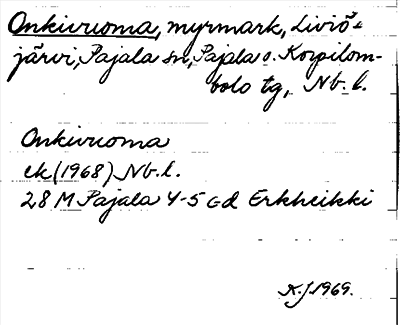 Onkivuoma, myrmark, Liviö-
järvi, Pajala sn, Pajala o. Korpilom-
bolo tg, Nb. l.
Onkivuoma
ek (1968) Nb. l.
28 M Pajala 4-5 cd Erkheikki
K.J 1969.